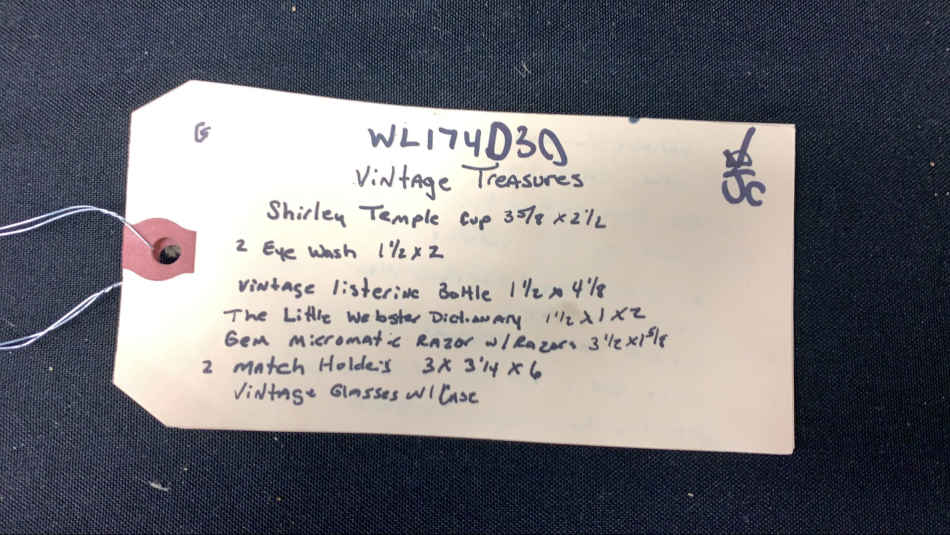 G
WL174D30
Vintage Treasures
Shirley Temple Cup 3 5/8 x 2 1/2
2 Eye Wash 1 1/2 x 2
Vintage listerine Bottle 1 1/2 x 4 1/8
The Little Webster Dictionary 1 1/2 x 1 x 2
Gem Micromatic Razor w/ Razors 3 1/2 x 1 5/8
2 Match Holders 3 x 3 1/4 x 6
Vintage Glasses w/ Case
JC